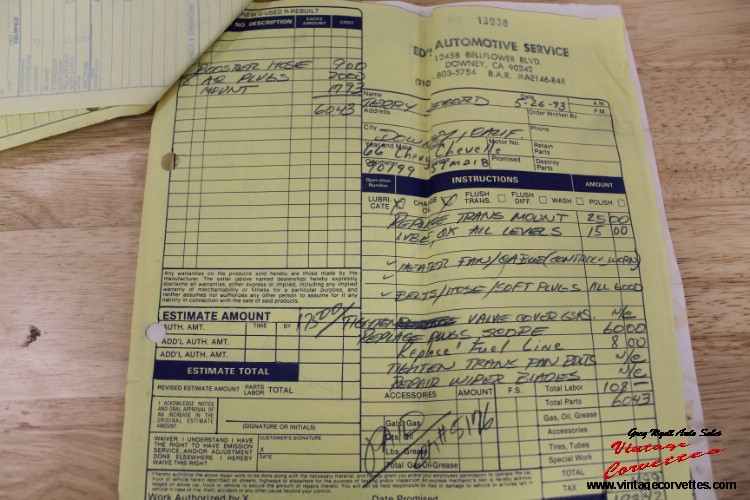 NEW U-USED R-REBUILT
NO. DESCRIPTION SALES AMOUNT COST
HOSE 9 00
PLUGS 20 00
MOUNT 17 93
60 43
No 13938
AUTOMOTIVE SERVICE
12458 BELLFLOWER BLVD.
DOWNEY, CA 90242
803-5754 B.A.R. #AE146-848
Name
TERRY
Date
5-26-93
A.M.
P.M.
Address
Order Written By
City
DOWNEY, CALIF.
Phone
Year and Make
66 Chevy Chevelle
Motor No.
Retain Parts
Odometer
Promised
Destroy Parts
Operation Number INSTRUCTIONS AMOUNT
LUBRICATE X CHANGE OIL X FLUSH TRANS. FLUSH DIFF. WASH POLISH
REPLACE TRANS MOUNT 25 00
LUBE, OK ALL LEVELS 15 00
✓ HEATER FAN/CABLE (CONTROL WORN)
✓ BELTS/HOSE/SOFT PLUGS ALL GOOD
TIGHTEN VALVE COVER GSKS. N/C
REPLACE PLUGS SCOPE 60 00
Replace Fuel Line 8 00
TIGHTEN TRANS PAN BOLTS N/C
REPAIR WIPER BLADES N/C
Any warranties on the products sold hereby are those made by the
manufacturer. The seller above named dealership hereby expressly
disclaims all warranties, either express or implied, including any implied
warranty of merchantability or fitness for a particular purpose, and
neither assumes nor authorizes any other person to assume for it any
liability in connection with the sale of said products.
ESTIMATE AMOUNT 175 00
AUTH. AMT. TIME BY
ADD'L AUTH. AMT.
ADD'L AUTH. AMT.
ESTIMATE TOTAL
REVISED ESTIMATE AMOUNT PARTS LABOR TOTAL
I ACKNOWLEDGE NOTICE
AND ORAL APPROVAL OF
AN INCREASE IN THE
ORIGINAL ESTIMATE
AMOUNT.
(SIGNATURE OR INITIALS)
WAIVER: I UNDERSTAND I HAVE
THE RIGHT TO HAVE EMISSION
SERVICE AND/OR ADJUSTMENT
DONE ELSEWHERE I HEREBY
WAIVE THIS RIGHT.
CUSTOMER'S SIGNATURE
X
(SIGNATURE)
ACCESSORIES AMOUNT F.S.
Total Labor 108 —
Total Parts 60 43
Gals. Gas
Gas, Oil, Grease
Qts. Oil
Accessories
Lbs. Grease
Tires, Tubes
Total Gas-Oil-Grease
Special Work
#5176
TOTAL
TAX
Work Authorized by X
Date Promised
Greg Wyatt Auto Sales
Vintage
Corvettes
www.vintagecorvettes.com